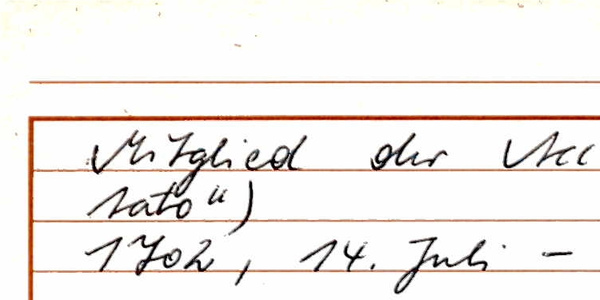 Mitglied der Acc
sato")
1702, 14. Juli -